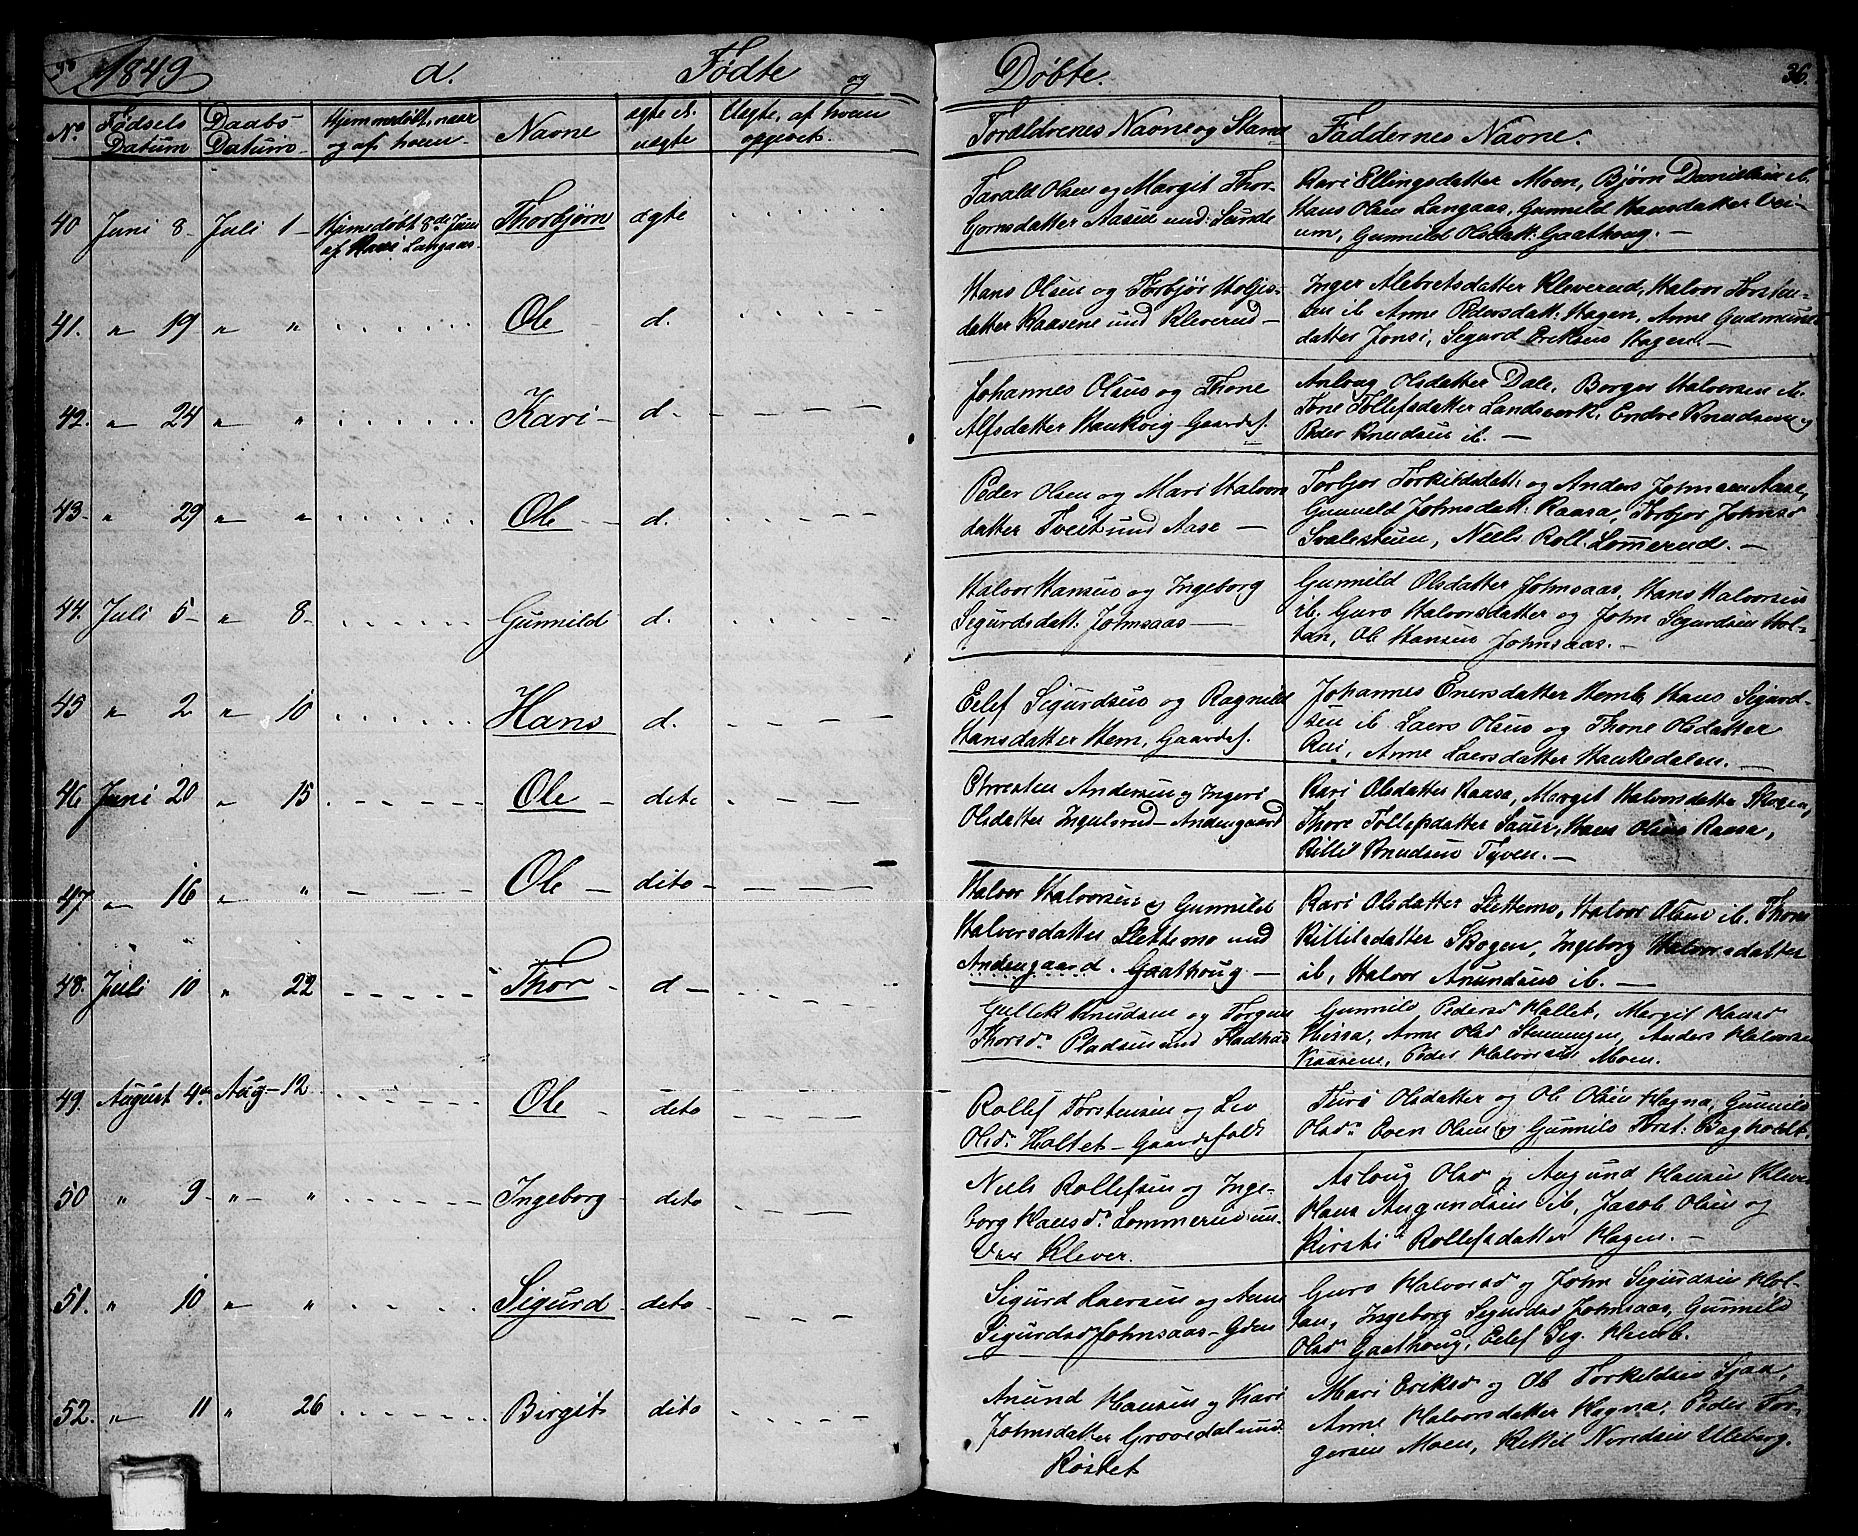 1849 a. Fødte og Døbte. 36.
No. Fødsels Datum Daabs Datum Hjemmedøbt, naar og af hvem Navne ægte el. uægte Uegte, af hvem opgivet. Forældrenes Navne og Stand Faddernes Navne.
40 Juni 8 Juli 1 Hjemdøbt 8de Juni Thorbjørn ægte
af Kari Langaas.
Tarald Olsen og Margit Thor-
Gornsdatter Aasud und: Sunde
Kari Ellingsdatter Moen, Bjørn Danielsen ib.
Hans Olsen Langaas, Gunnild Hansdatter
um, Gunnild Olsdatt: Gaathoug. —
41. " 19 " " Ole d.
Hans Olsen og Torbjør Holjes-
datter Kaasene und Kleverud —
Inger Alebretsdatter Kleverud, Halvor Torsten-
sen ib Anne Pedersdatt: Hagen, Anne Gudmunds
datter Jonsi, Segurd Eriksens Hagen. —
42. " 24 " " Kari d.
Johannes Olsens og Thone
Alfsdatter Haukvig Gaardef.
Anloug Olsdatter Dale, Borger Halvorsen ib.
Tone Tollefsdatter Landsverk, Endre Knudsen og
Peder Knudsen ib. —
43 " 29 " " Ole d.
Peder Olsen og Mari Halvors
datter Tveit und Aase —
Torbjør Torkildsdatt: og Anders Johnsen Aase,
Gunnild Johnsdatt: Kaasa, Torbjør Johnsd
Svalesteen, Niels Roll: Lomerud. —
44. Juli 5 " 8 Gunnild d.
Halvor Hansens og Ingeborg
Segurdsdatt: Johnsaas —
Gunnild Olsdatter Johnsaas, Hans Halvorsen
ib. Guro Halvorsdatter og John Segurdsen Hol-
tan, Ole Hansens Johnsaas. —
45 " 2 " 10 Hans d.
Eelef Sigurdsens og Ragnild
Hansdatter Hem, Gaardef.
Johannes Enersdatter Hemb, Hans Sigurd-
sen ib. Laers Olsens og Thone Olsdatter
Rui, Anne Laersdatter Haukedalen. —
46 Juni 20 " 15 Ole dito
Chresten Andersen og Ingeri
Olsdatter Ingulsrud — Andengaard
Kari Olsdatter Kaasa, Margit Halvorsdatter Skogen,
Thore Tollefsdatter Sauer, Hans Olsens Kaasa,
Killil Knudsens Tyven. —
47 " 16 " " Ole dito
Halvor Halvorsen og Gunnild
Halvorsdatter Slettemo und
Andengaard. Gaathoug —
Kari Olsdatter Slettemo, Halvor Olsen ib. Thore
Kittilsdatter Skogen, Ingeborg Halvorsdatter
ib, Halvor Anundsens ib. —
48. Juli 10 " 22 Thor d
Gullek Knudsen og Torgun
Thorsd. Pladsen und Fladhus
Gunnild Pedersd Hallet, Margit Hansd
Hissa, Anne Olsd, Anders Halvorsen
Kaasene, Peder Halvorsen Moen.
49. August 4de Aug 12 Ole dito
Rollef Torstensen og Liv
Olsd. Holtet — Gaardefolk
Turi Olsdatter og Ole Olsen Hagna, Gunnild
Olsd. Even Olsen og Gunnild Torst: Bagholdt.
50 " 9 " " Ingeborg dito
Niels Rollefsen og Inge-
borg Hansd. Lommerud un-
der Klever.
Aslaug Olsd og Augund Hansen Klever
Hans Augundsen ib, Jacob Olsen og
Kirsti Rollefsdatter Hagen. —
51. " 10 " " Sigurd dito
Sigurd Laersen og Anne
Sigurdsd Johnsaas — Gden
Guro Halvorsd og John Sigurdsen Hol-
tan, Ingeborg Segurdsd Johnsaas, Gunnild
Olsd Gaathoug, Eelef Sig. Hemb.
52. " 11 " 26 Birgit dito
Anund Hansen og Kari
Johnsdatter Grovedal und:
Røstet
Mari Eriksd og Ole Torkeldsen Sjaa,
Anne Halvorsdatter Hagna, Peder Tor-
gersen Moen, Kittil Noridsen Uleborg.